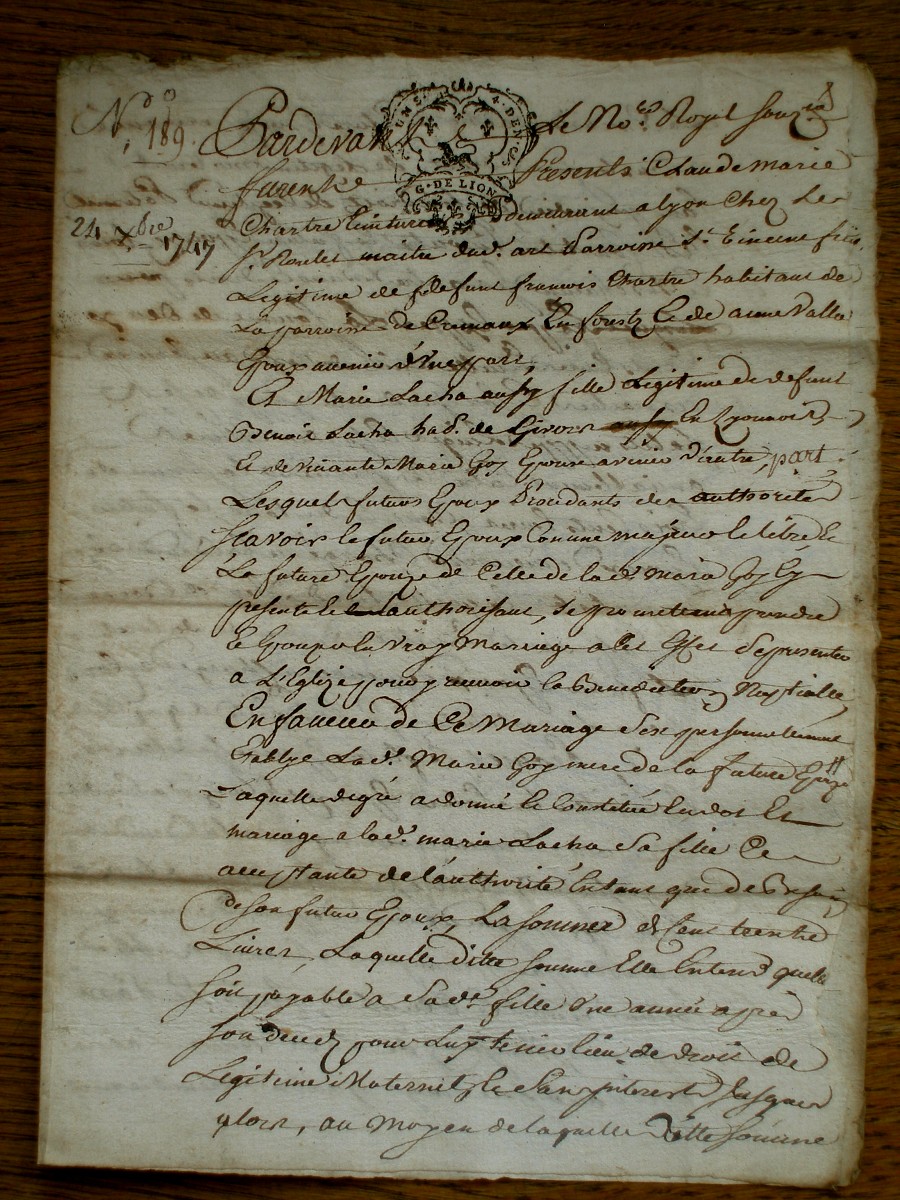 N.o 189
24 xbre 1747
UNS. 4. DEN. CS
G. DE LION
Pardevant Le No.re Royal sousné
furent presents Claude marie
Chartre teinturier demeurant a lyon Chez Le
sr. maitre dud. art Parroisse st. Vincent fils
Legitime de feu defunt francois Chartre habitant de
La parroisse de Cremaux En forestz & de anne Valla
Epoux avenir d'Une part,
Et Marie Lacha aussy fille Legitime de defunt
Benoit Lacha hab. de Givors en Lyonnois
Et de vivante Marie Goy Epouse avenir d'autre part.
Lesquels futurs Epoux Procedants des authorités
scavoir le futur Epoux Comme majeur & libre, &
La future Epouze de Celle de lad. marie Goy Icy
presente & L'authorisant, se promettent prendre
En vray Mariage a cet Effet se presenter
a L'Eglize pour y recevoir la Benediction Nuptialle,
En faveur de Ce Mariage s'est personnellement
Etablye Lad. Marie Goy mere de la future Epouze
Laquelle de gré a donné & Constitué En dot Et
mariage a lad. marie Lacha sa fille Ce
acceptante de l'authorité Entant que de Besoin
de son futur Epoux, La somme de Cent trente
Livres, Laquelle ditte somme Elle Entend quelle
soit payable a Sad. fille Une année aprés
son decedz pour Luy tenir lieu de droit de
Legitime Maternel, & san interest Jusques
alors, au moyen de laquelle ditte somme